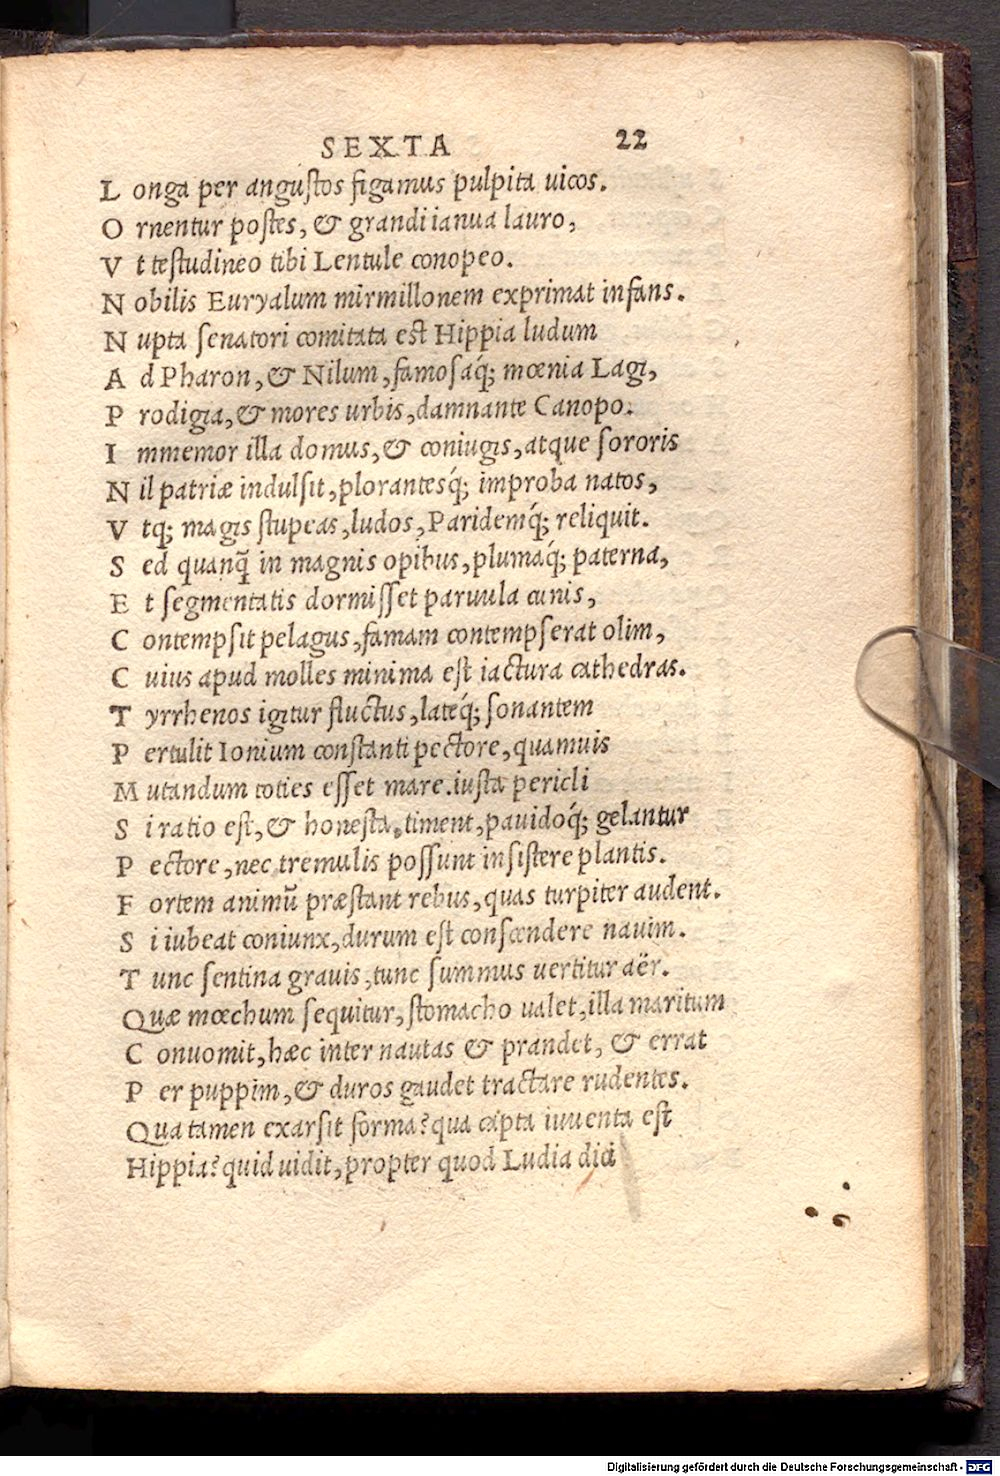 SEXTA 22
L onga per angustos figamus pulpita uicos.
O rnentur postes, & grandi ianua lauro,
V t testudineo tibi Lentule conopeo.
N obilis Euryalum mirmillonem exprimat infans.
N upta senatori comitata est Hippia ludum
A d Pharon, & Nilum, famosaq́; mœnia Lagi,
P rodigia, & mores urbis, damnante Canopo.
I mmemor illa domus, & coniugis, atque sororis
N il patriæ indulsit, plorantesq́; improba natos,
V tq; magis stupeas, ludos, Paridemq́; reliquit.
S ed quanq̃ in magnis opibus, plumaq́; paterna,
E t segmentatis dormisset paruula cunis,
C ontempsit pelagus, famam contempserat olim,
C uius apud molles minima est iactura cathedras.
T yrrhenos igitur fluctus, lateq́; sonantem
P ertulit Ionium constanti pectore, quamuis
M utandum toties esset mare. iusta pericli
S i ratio est, & honesta, timent, pauidoq́; gelantur
P ectore, nec tremulis possunt insistere plantis.
F ortem animū præstant rebus, quas turpiter audent.
S i iubeat coniunx, durum est conscendere nauim.
T unc sentina grauis, tunc summus uertitur aër.
Quæ mœchum sequitur, stomacho ualet, illa maritum
C onuomit, hæc inter nautas & prandet, & errat
P er puppim, & duros gaudet tractare rudentes.
Qua tamen exarsit forma? qua capta iuuenta est
Hippia? quid uidit, propter quod Ludia dici
Digitalisierung gefördert durch die Deutsche Forschungsgemeinschaft - DFG